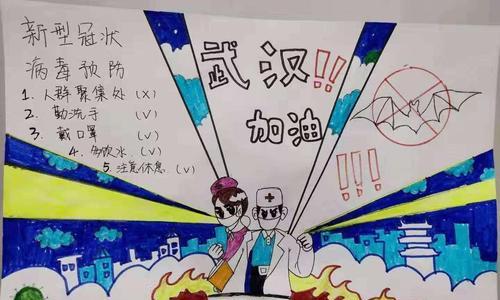 新型冠状
病毒预防
1. 人群聚集处 (X)
2. 勤洗手 (V)
3. 戴口罩 (V)
4. 多饮水 (V)
5. 注意休息 (V)
武汉!!
加油
!!!